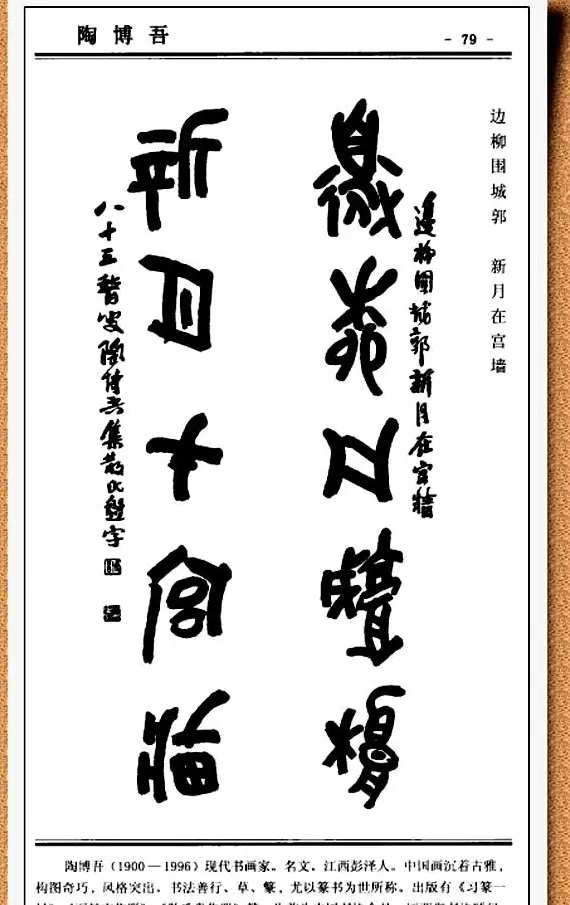 陶博吾
- 79 -
边柳围城郭 新月在宫墙
邊柳圍城郭新月在宫牆
邊柳囗城郭
新月才宫牆
八十三瞽叟陶博吾集散氏盤字
陶博吾（1900—1996）现代书画家。名文。江西彭泽人。中国画沉着古雅，
构图奇巧，风格突出。书法善行、草、篆，尤以篆书为世所称。出版有《习篆一